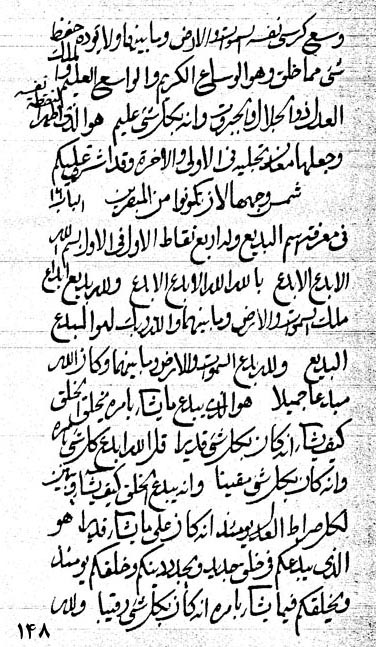 وسع كرسى نفسه السموات والارض وما بينهما ولا يؤده حفظ
شئ مما خلق وهو الواسع الكريم والواسع العليم
العدل ذو الجلال والجبروت وانه بكل شئ عليم هو الذى
وجعلها تجليه فى الاولى والاخرة وقد اشرق عليكم
شمس وجهها لان تكونوا من المقربين الباب ١٦
فى معرفة اسم البديع وله اربع نقاط الاول فى الاول بسم الله
الابدع الابدع بالله الله الابدع الابدع ولله بديع
ملك السموات والارض وما بينهما والله لهو المبدع
البديع ولله بدع السموات والارض وما بينهما وكان الله
مبدعا جميلا هو الذى يبدع ما يشاء بامره يخلق الخلق
كيف يشاء انه كان بكل شئ قديرا قل الله ابدع كل شئ بامره
وانه كان بكل شئ مقيتا وانه يبدع الخلق كيف يشاء
لكل صراط العدل يومئذ انه كان على ما يشاء قديرا هو
الذى يبدعكم فى خلق جديد ويجدد دينكم وخلقكم يومئذ
ويخلقكم فيما يشاء بامره انه كان بكل شئ رقيبا ولله
١٤٨